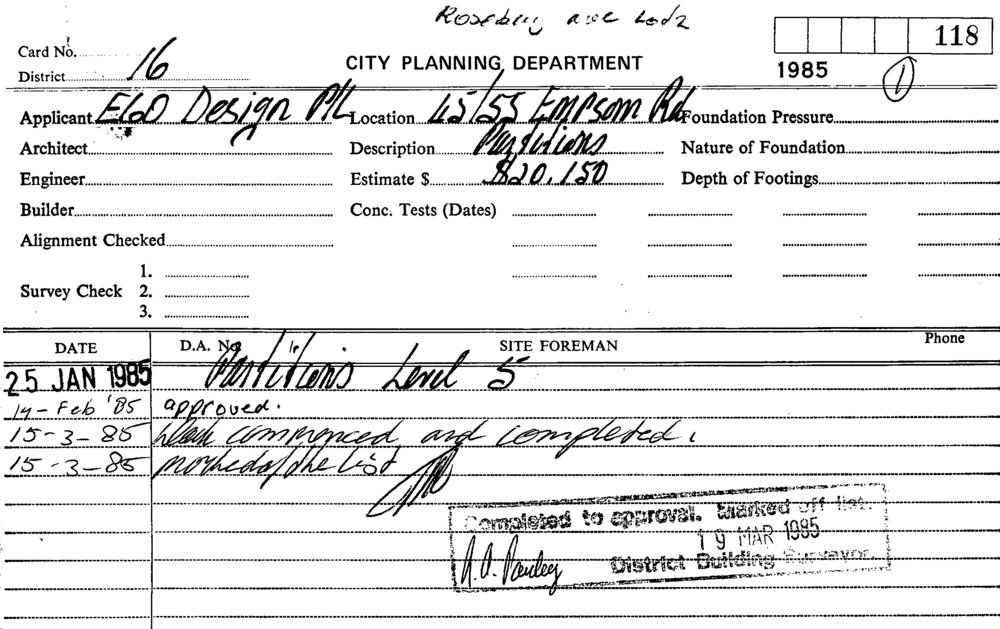 Rosebery
118
Card No.
16
District
CITY PLANNING DEPARTMENT
1985
1
Applicant Design P/L
Location 45/55 Empsom Rd
Foundation Pressure
Architect
Description Partitions
Nature of Foundation
Engineer
Estimate $ $20,150
Depth of Footings
Builder
Conc. Tests (Dates)
Alignment Checked
Survey Check
1.
2.
3.
DATE
D.A. No.
SITE FOREMAN
Phone
25 JAN 1985 Partitions Level 5
14-Feb '85 approved.
15-3-85 Work commenced and completed.
15-3-85 list
Completed to approval. Marked off list.
19 MAR 1985
District Building Surveyor.